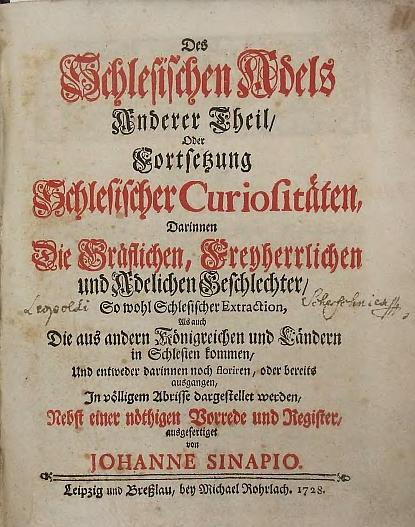 Des
Schlesischen Adels
Anderer Theil/
Oder
Fortsetzung
Schlesischer Curiositäten,
Darinnen
Die Gräflichen, Freyherrlichen
und Adelichen Geschlechter/
Leopoldi
So wohl Schlesischer Extraction,
Als auch
Die aus andern Königreichen und Ländern
in Schlesien kommen/
Und entweder darinnen noch floriren, oder bereits
ausgangen,
In völligem Abrisse dargestellet werden/
Nebst einer nöthigen Vorrede und Register,
ausgefertiget
von
JOHANNE SINAPIO.
Leipzig und Breßlau, bey Michael Rohrlach. 1728.